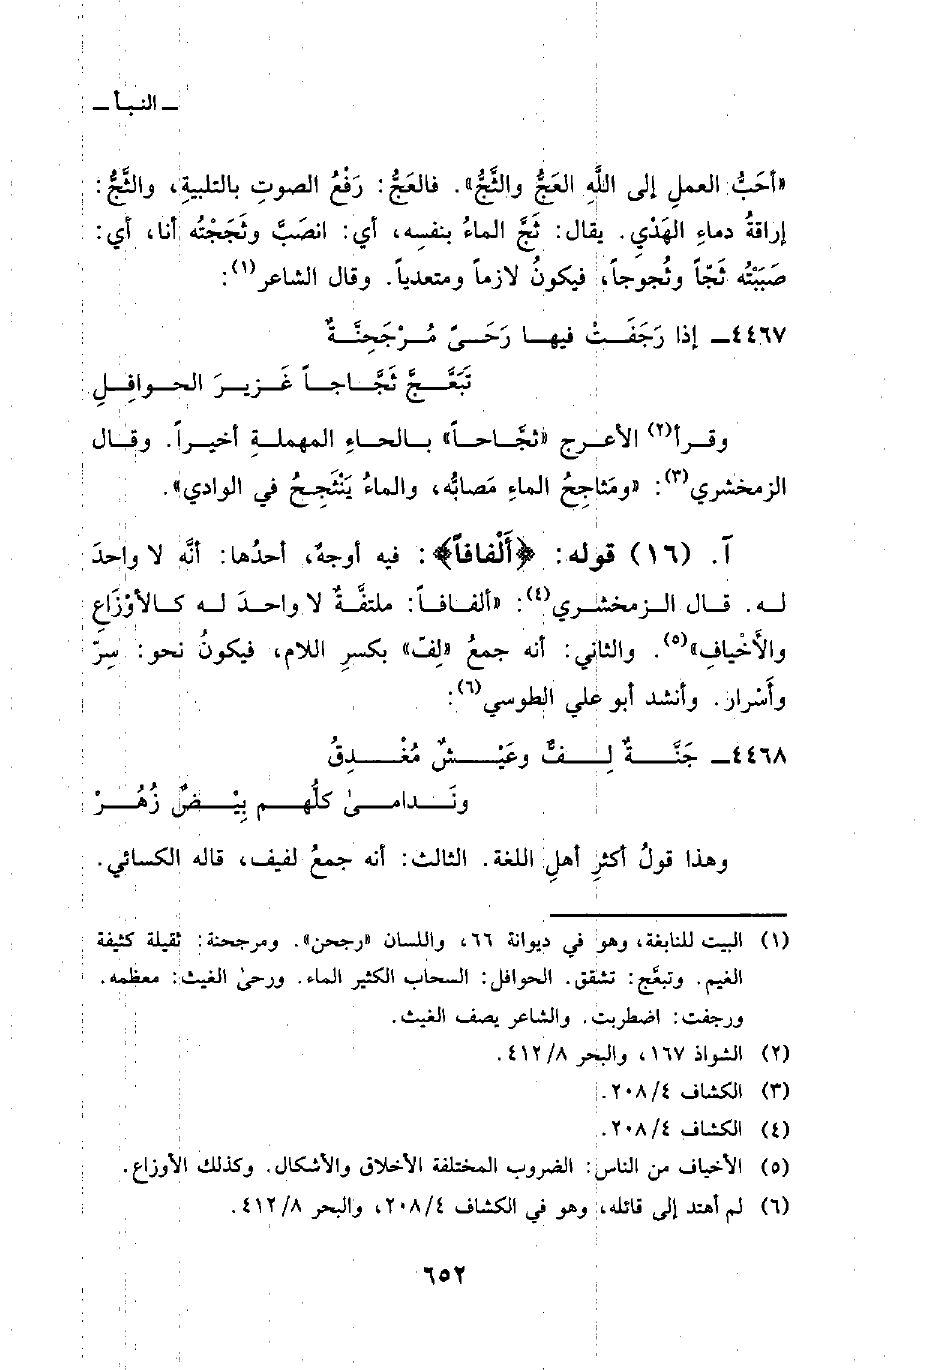 ـ النبأ ـ
«أحَبُّ العملِ إلى اللَّهِ العَجُّ والثَّجُّ». فالعَجُّ: رَفْعُ الصوتِ بالتلبيةِ، والثَّجُّ:
إراقةُ دماءِ الهَدْيِ. يقال: ثَجَّ الماءُ بنفسِه، أي: انصَبَّ وثَجَجْتُه أنا، أي:
صَبَبْتُه ثَجّاً وثُجوجاً، فيكونُ لازماً ومتعدياً. وقال الشاعر(١):
٤٤٦٧ـ إذا رَجَفَـتْ فيهـا رَحَـىً مُـرْجَحِنَّـةٌ
تَبَعَّـجَ ثَجَّـاجـاً غَـزيـرَ الحـوافِـلِ
وقـرأ(٢) الأعـرج «ثجَّـاحـاً» بـالحـاءِ المهملـةِ أخيـراً. وقـال
الزمخشري(٣): «ومَثاجِحُ الماءِ مَصابُّه، والماءُ يَنْثَجِـحُ في الوادي».
آ. (١٦) قوله: ﴿أَلْفافاً﴾: فيه أوجهٌ، أحدُها: أنَّه لا واحدَ
لـه. قـال الـزمخشـري(٤): «ألفـافـاً: ملتفَّـةٌ لا واحـدَ لـه كـالأوْزَاعِ
والأَخْيافِ»(٥). والثاني: أنه جمعُ «لِفّ» بكسرِ اللام، فيكونُ نحو: سِرّ
وأَسْرار. وأنشد أبو علي الطوسي(٦):
٤٤٦٨ـ جَنَّـةٌ لِـفٌّ وعَيْـشٌ مُغْـدِقُ
ونَـدامـىٰ كلُّهـم بِيْـضٌ زُهُـرْ
وهذا قولُ أكثرِ أهلِ اللغة. الثالث: أنه جمعُ لفيف، قاله الكسائي.
(١) البيت للنابغة، وهو في ديوانة ٦٦، واللسان «رجحن». ومرجحنة: ثقيلة كثيفة
الغيم. وتبعَّج: تشقق. الحوافل: السحاب الكثير الماء. ورحىٰ الغيث: معظمه.
ورجفت: اضطربت. والشاعر يصف الغيث.
(٢) الشواذ ١٦٧، والبحر ٤١٢/٨.
(٣) الكشاف ٢٠٨/٤.
(٤) الكشاف ٢٠٨/٤.
(٥) الأخياف من الناس: الضروب المختلفة الأخلاق والأشكال. وكذلك الأوزاع.
(٦) لم أهتد إلى قائله، وهو في الكشاف ٢٠٨/٤، والبحر ٤١٢/٨.
٦٥٢